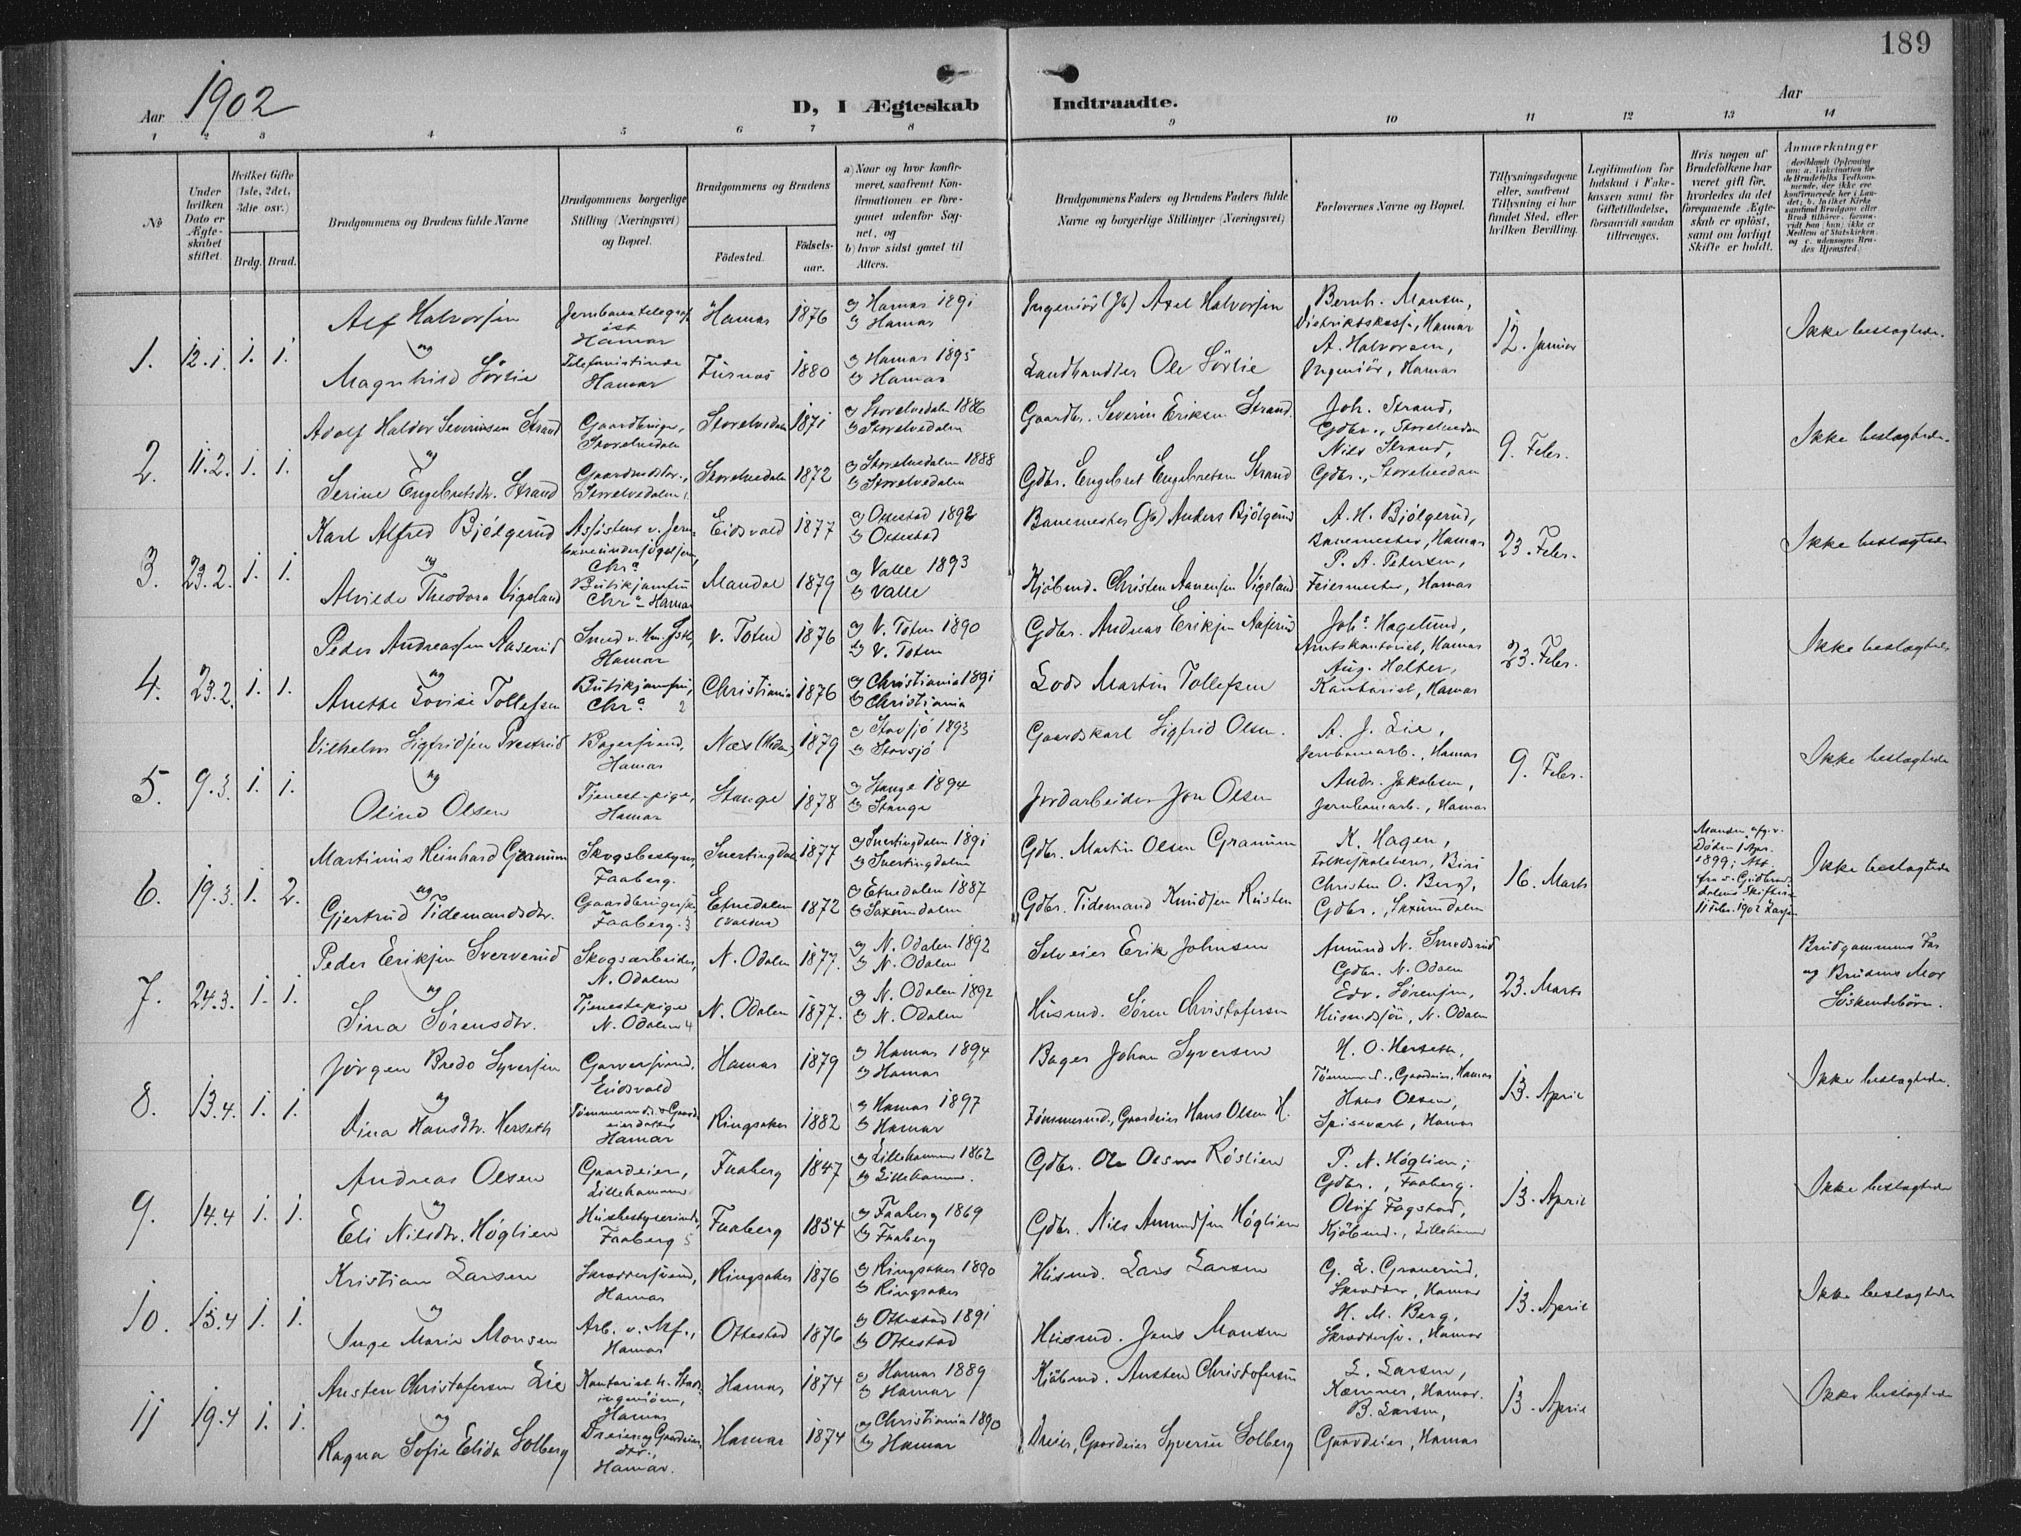 189
Aar 1902
D, I Ægteskab Indtraadte.
Aar
1 2 3 4 5 6 7 8 9 10 11 12 13 14
No
Under hvilken Dato er Ægteskabet stiftet.
Hvilket Gifte (1ste, 2det, 3die osv.)
Brdg. Brud.
Brudgommens og Brudens fulde Navne
Brudgommens borgerlige Stilling (Næringsvei) og Bopæl.
Brudgommens og Brudens
Födested. Födselsaar.
a) Naar og hvor konfirmeret, saafremt Konfirmationen er foregaaet udenfor Sognet, og
b) hvor sidst gaaet til Alters.
Brudgommens Faders og Brudens Faders fulde Navne og borgerlige Stillinger (Næringsvei)
Forlovernes Navne og Bopæl.
Tillysningsdagene eller, saafremt Tillysning ei har fundet Sted, efter hvilken Bevilling.
Legitimation for Indskud i Enkekassen samt for Giftetilladelse, forsaavidt saadan tiltrænges.
Hvis nogen af Brudefolkene har været gift før, hvorledes da det foregaaende Ægteskab er opløst, samt om lovligt Skifte er holdt.
Anmærkninger
1. 12.1. 1. 1.
Alf Halvorsen
og
Magnhild Sörlie
Jernbanetelegrafist Hamar
Telefonistinde Hamar
Hamar 1876
Furnæs 1880
a) Hamar 1891
b) Hamar
a) Hamar 1895
b) Hamar
Ingeniör (Jb) Axel Halvorsen
Landhandler Ole Sörlie
Bernh. Hansen,
Distriktskass., Hamar
A. Halvorsen,
Ingeniör, Hamar
12. Januar
Ikke beslægtede.
2. 11.2. 1. 1.
Adolf Haldor Severinsen Strand
og
Serine Engebretsdtr. Strand
Gaardbruger, Storelvedalen
Gaardmdsdtr., Storelvedalen
Storelvedalen 1871
Storelvedalen 1872
a) Storelvedalen 1886
b) Storelvedalen
a) Storelvedalen 1888
b) Storelvedalen
Gaardbr. Severin Eriksen Strand.
Gdbr. Engebret Engebretsen Strand
Joh. Strand,
Gdbr., Storelvedalen
Nils Strand,
Gdbr., Storelvedalen
9. Febr.
Ikke beslægtede.
3. 23.2. 1. 1.
Karl Alfred Bjölgerud
og
Alvilde Theodora Vigeland
Assistent v. Jernbaneundersögelsen, Chra
Butikjomfru Chra - Hamar
Eidsvold 1877
Mandal 1879
a) Ottestad 1892
b) Ottestad
a) Valle 1893
b) Valle
Banemester (Jb) Anders Bjölgerud
Kjöbmd. Christen Aanensen Vigeland
A. H. Bjölgerud,
Banemester, Hamar
P. A. Petersen,
Feiermester, Hamar
23. Febr.
Ikke beslægtede
4. 23.2. 1. 1.
Peder Andreassen Aaserud
og
Anette Lovise Tollefsen
Smed v. Hm. Jstb, Hamar
Butikjomfru, Chra 2
V. Toten 1876
Christiania 1876
a) V. Toten 1890
b) V. Toten
a) Christiania 1891
b) Christiania
Gdbr. Andreas Eriksen Aaserud
Lods Martin Tollefsen
Johs Hagelund,
Amtskontorist, Hamar
Aug. Holter,
Kontorist, Hamar
23. Febr.
Ikke beslægtede
5. 9.3. 1. 1.
Vilhelm Sigfridsen Prestrud
og
Oline Olsen
Bagersvend, Hamar
Tjenestepige, Hamar
Næs (Hedm.) 1879
Stange 1878
a) Stavsjö 1893
b) Stavsjö
a) Stange 1894
b) Stange
Gaardskarl Sigfrid Olsen.
Jordarbeider Jon Olsen
A. J. Lie,
Jernbanearb., Hamar
Andr. Jakobsen,
Jernbanearb., Hamar
9. Febr.
Ikke beslægtede
6. 19.3. 1. 2.
Martinus Meinhard Granum
og
Gjertrud Tidemandsdtr.
Skogsbestyrer, Faaberg.
Faaberg. 3
Snertingdalen 1877
Etnedalen (Valdres) 1872
a) Snertingdalen 1891
b) Snertingdalen
a) Etnedalen 1887
b) Saxumdalen
Gdbr. Martin Olsen Granum
Gdbr. Tidemand Knudsen Rusten
K. Hagen,
Folkeskolelærer, Biri
Christen O. Berg,
Gdbr., Saxumdalen
16. Marts
Manden afg. v. Döden 1 Apr. 1899; Att. fra s. Gudbrandsdalens Skifteret 11 Febr. 1902
Ikke beslægtede
7. 24.3. 1. 1.
Peder Eriksen Sververud
og
Sina Sörensdtr.
Skogsarbeider, N. Odalen
Tjenestepige N. Odalen 4
N. Odalen 1877.
N. Odalen 1877.
a) N. Odalen 1892
b) N. Odalen
a) N. Odalen 1892
b) N. Odalen
Selveier Erik Johnsen
Husmd. Sören Christofersen
Amund N. Smedsrud
Gdbr. N. Odalen
Edv. Sörensen,
Husmdssön, N. Odalen
23. Marts
Brudgommens Far og Brudens Mor Söskendebörn.
8. 13.4. 1. 1.
Jörgen Bredo Syversen
og
Dina Hansdtr. Herseth
Garversvend, Eidsvold
Tömmermd. & Gaardeierdatter Hamar
Hamar 1879
Ringsaker 1882
a) Hamar 1894
b) Hamar
a) Hamar 1897
b) Hamar
Bager Johan Syversen
Tömmermd., Gaardeier Hans Olsen H.
H. O. Herseth,
Tömmermd., Gaardeier, Hamar
Hans Olsen,
Spisevært, Hamar
13. April
Ikke beslægtede.
9. 14.4 1. 1.
Andreas Olsen
og
Eli Nilsdtr. Höglien
Gaardeier, Lillehammer
Husbestyrerinde, Faaberg 5
Faaberg 1847
Faaberg 1854
a) Lillehammer 1862
b) Lillehammer.
a) Faaberg 1869
b) Faaberg
Gdbr. Ole Olsen Röslien
Gdbr. Nils Amundsen Höglien
P. N. Höglien,
Gdbr., Faaberg.
Oluf Fagstad,
Kjöbmd., Lillehammer
13. April
Ikke beslægtede
10. 15.4 1. 1.
Kristian Larsen
og
Inge Marie Monsen
Skræddersvend, Hamar
Arb. v. Mf., Hamar
Ringsaker 1876
Ottestad 1876
a) Ringsaker 1890
b) Ringsaker
a) Ottestad 1891
b) Ottestad
Husmd. Lars Larsen
Husmd. Jens Monsen
G. L. Granerud,
Skrædder, Hamar
H. M. Berg,
Skræddersv., Hamar
13. April
Ikke beslægtede
11 19.4 1. 1.
Austen Christofersen Lie
og
Ragna Sofie Elida Solberg
Kontorist h. Stadsingeniören, Hamar
Dreier og Gaardeierdtr., Hamar.
Hamar 1874
Hamar 1874
a) Hamar 1889
b) Hamar
a) Christiania 1890
b) Hamar
Kjöbmd. Austen Christofersen
Dreier, Gaardeier Syverin Solberg
L. Larsen,
Kæmner, Hamar.
B. Larsen,
Gaardeier, Hamar
13. April
Ikke beslægtede